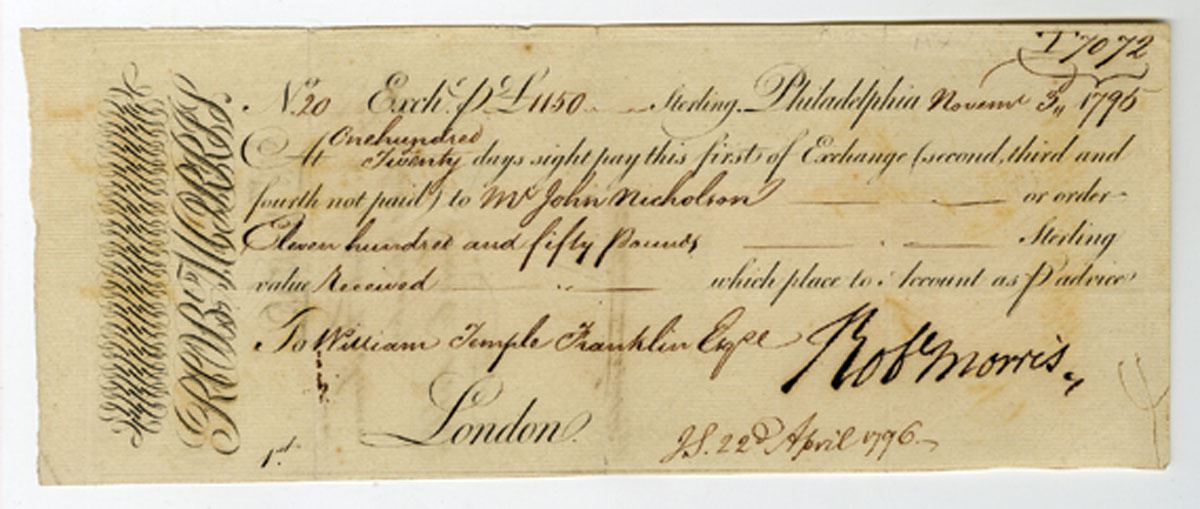 T 7072
No. 20 Exche. p. £1150 Sterling. Philadelphia Novemr. 3, 1795
At One hundred
Twenty days sight pay this first of Exchange (second, third and
fourth not paid) to Mr. John Nicholson or order
Eleven hundred and fifty Pounds Sterling
value Received which place to Account as P advice
To William Temple Franklin Esqre
Robt Morris
London.
1st.
JS. 22d April 1796
ROBT. MORRIS